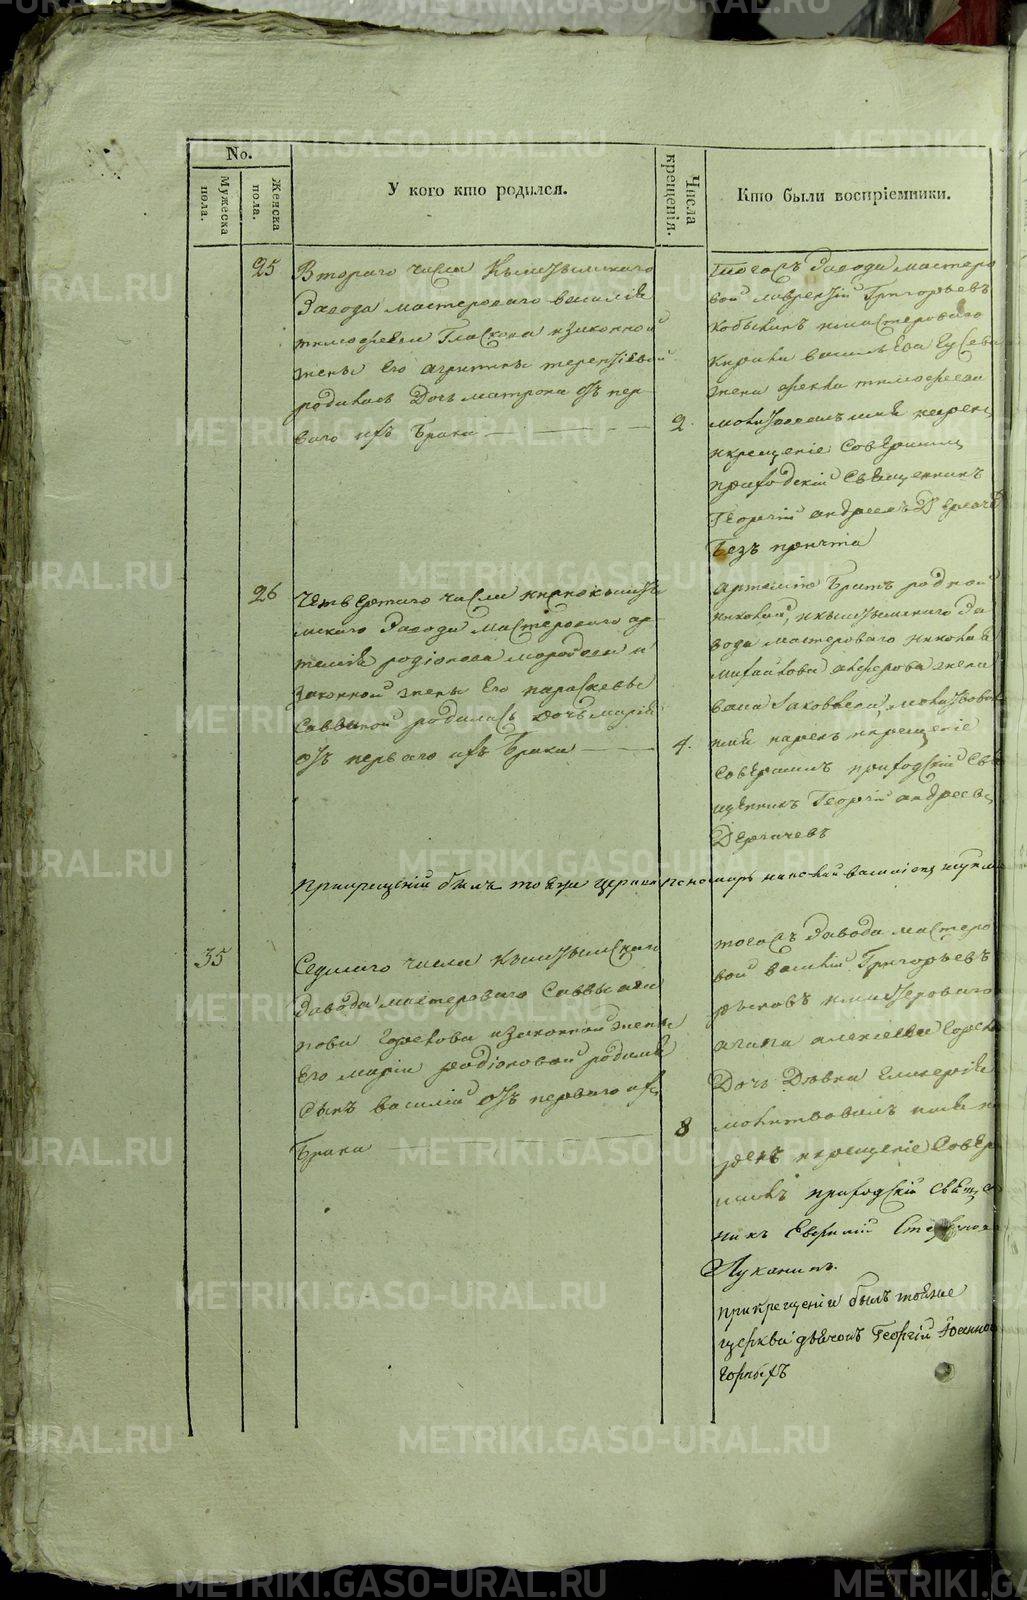 No.
Мужеска пола.
Женска пола.
У кого кто родился.
Числа крещенія.
Кто были воспріемники.
25
Втораго числа Кыштымскаго
Завода мастероваго василія
тимофеева Гласкова изаконной
жены Его агрипины терентіевой
родилась Дочь матрона отъ пер-
ваго ихъ брака
2.
тогожъ Завода мастеро
вой лаврентій Григорьевъ
Кобылинъ имастероваго
васильева
жена фекла тимофеева
молитвовалъ имя нарекъ
икрещеніе Совершилъ
приходскій Священникъ
Георгій андреевъ Дергаче
безъ причта
26
Четвертаго числа
мскаго Завода мастероваго ар-
темія родіонова и
Законной жены Его параскевы
Саввиной родилась дочь марія
отъ перваго ихъ брака
4.
артемію братъ родной
николай, икыштымскаго За
вода мастероваго николая
михайлова жена
молитвовал
имя нарекъ икрещеніе
Совершилъ приходскій Свя
щенникъ Георгій андреевъ
Дергачевъ
прикрещеній былъ тояже церкви пономарь николай
35
Седмаго числа Кыштымскаго
Завода мастероваго Саввы
нова изаконной жены
Его маріи родіоновой родился
Сынъ василій отъ перваго ихъ
брака
8
тогожъ Завода мастеро
вой василій Григорьевъ
имастероваго
алексеева
Дочь Девка Гликерія
молитвовалъ имя на
рекъ икрещеніе Совер
шилъ приходскій Священ
никъ Евфимій Стефанов
Луканинъ.
прикрещеніи былъ тояже
церкви дьячокъ Георгій Іоанно
Горныхъ
METRIKI.GASO-URAL.RU